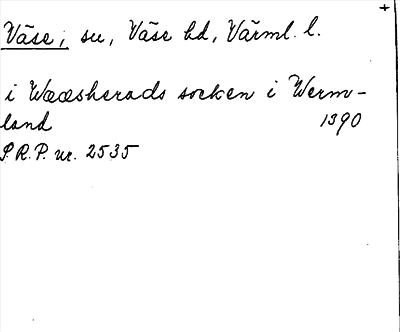 Väse, su, Väse hd, Värml. l.
i Wææsherads socken i Werm-
land 1390
S.R.P. nr. 2535